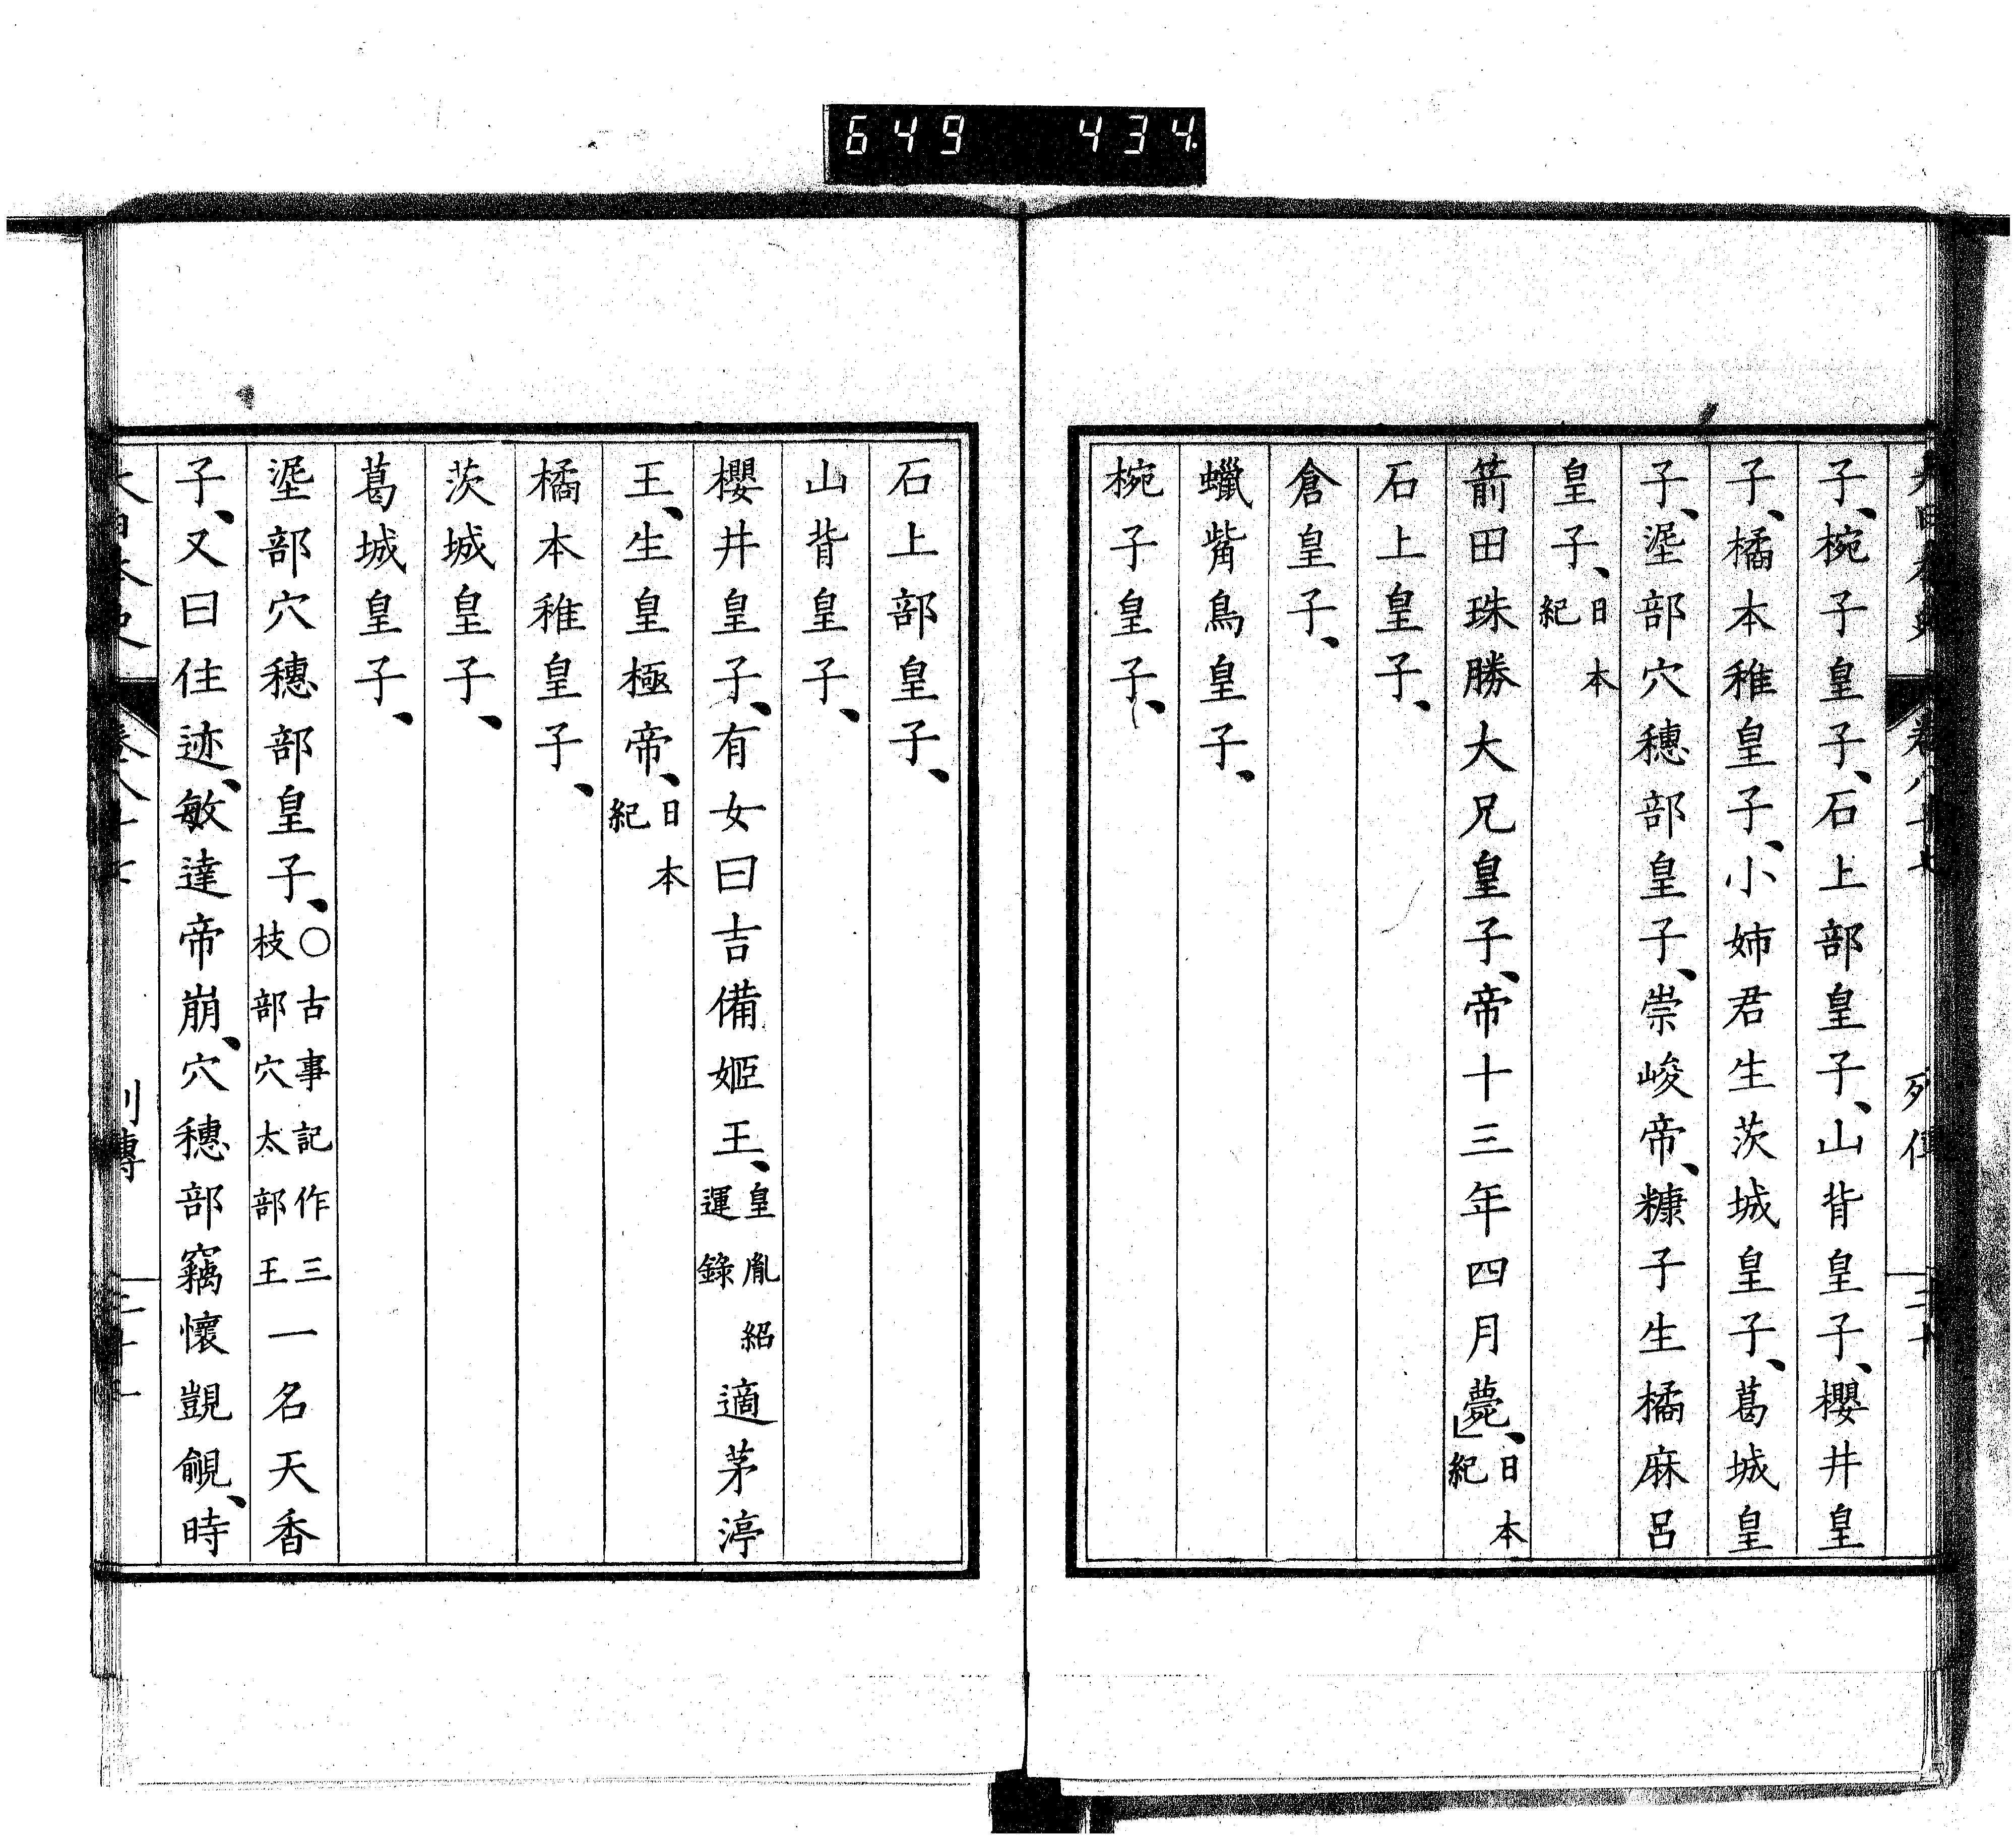 649 434.
子、椀子皇子、石上部皇子、山背皇子、櫻井皇
子、橘本稚皇子、小姉君生茨城皇子、葛城皇
子、埿部穴穗部皇子、崇峻帝、糠子生橘麻呂
皇子、日本紀
箭田珠勝大兄皇子、帝十三年四月薨、日本紀
石上皇子、
倉皇子、
蠟觜鳥皇子、
椀子皇子、
石上部皇子、
山背皇子、
櫻井皇子、有女曰吉備姬王、皇胤紹運錄適茅渟
王、生皇極帝、日本紀
橘本稚皇子、
茨城皇子、
葛城皇子、
埿部穴穗部皇子、○古事記作三枝部穴太部王一名天香
子、又曰住迹、敏達帝崩、穴穗部竊懷覬覦、時